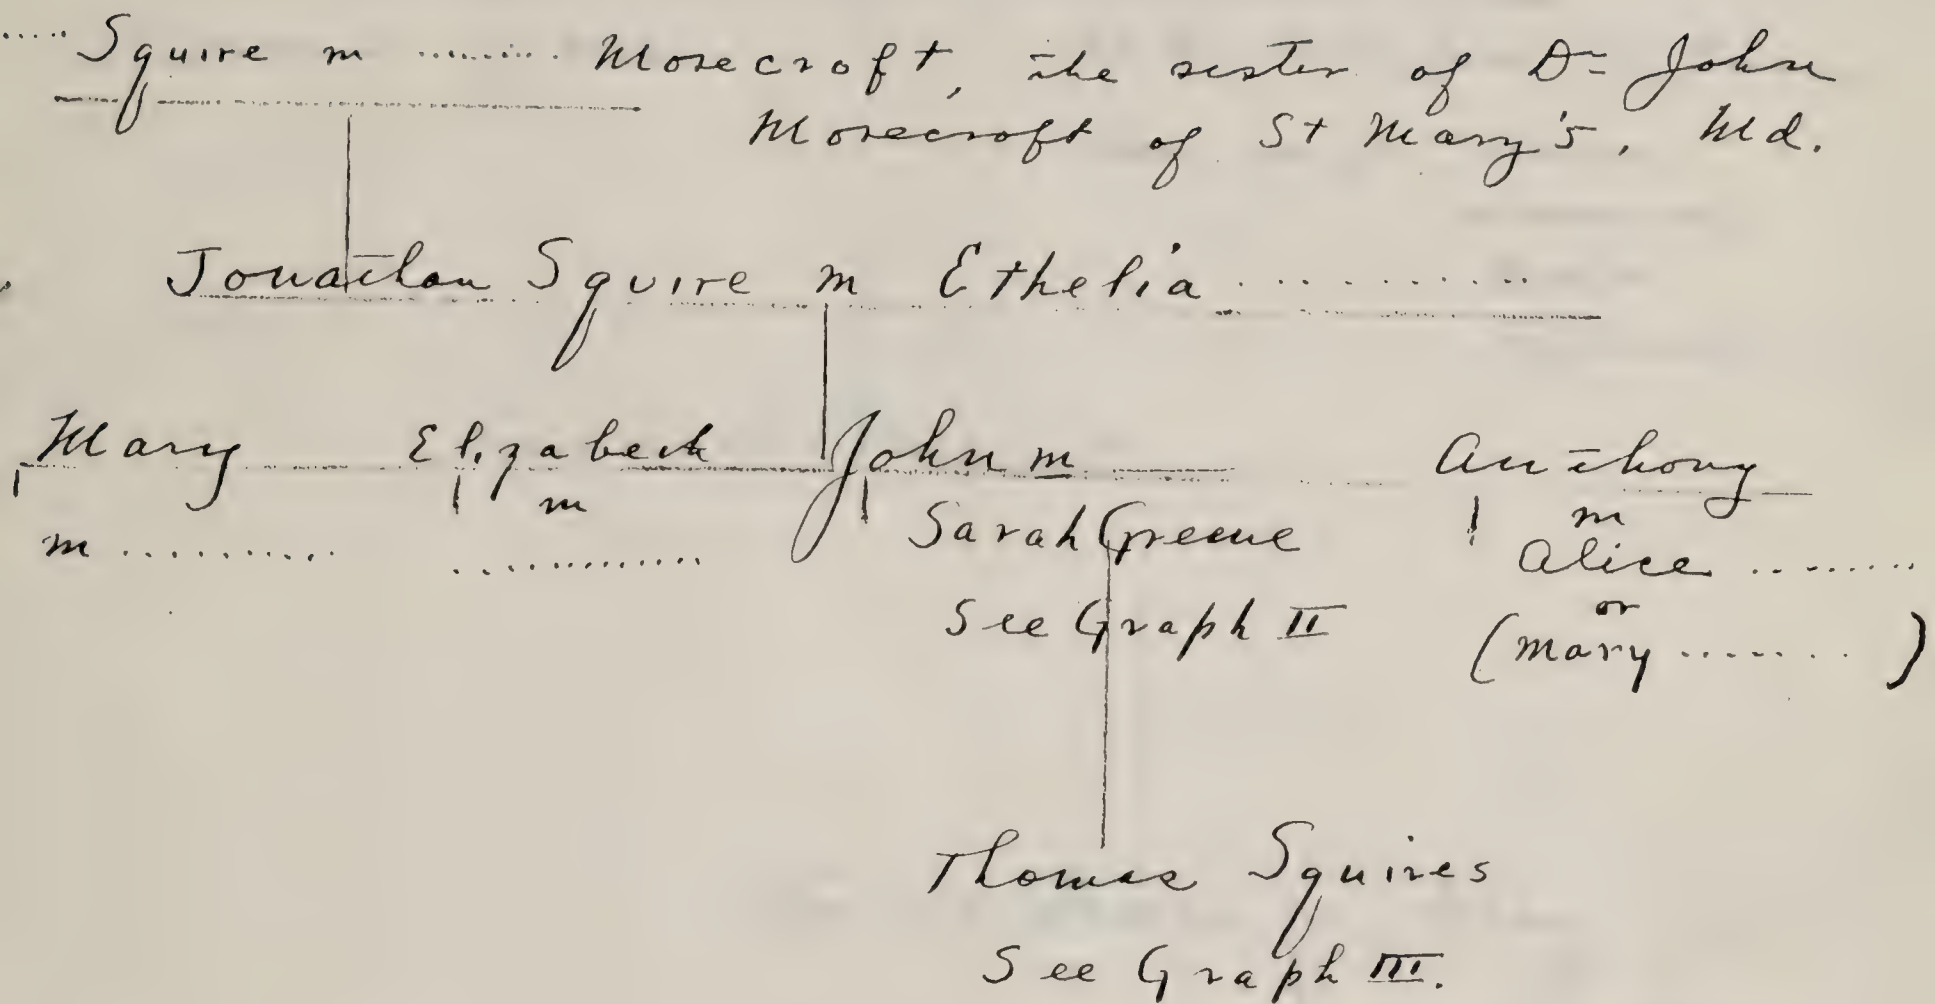 ..... Squire m ......... Morecroft, the sister of Dr John
Morecroft of St Mary's, Md.
Jonathan Squire m Ethelia ..........
Mary Elizabeth John m Anthony
m .......... m Sarah Greene m
............. Alice ........
See Graph II or
(Mary ........)
Thomas Squires
See Graph III.